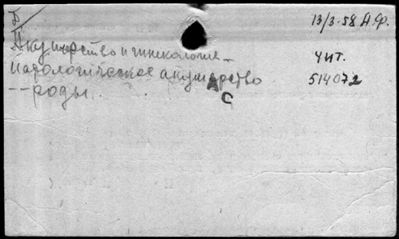 Б
13/3-58 А.Ф.
Акушерство и гинекология –
чит.
патологическое акушерство
514072
-- роды.
А
С